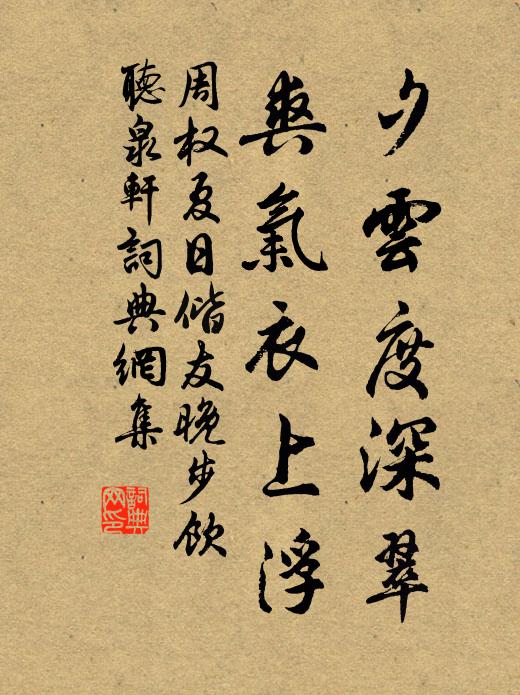 夕雲度深翠
爽氣衣上浮
周权夏日偕友晚步飲
聽泉軒詞典網集
詞典
网印